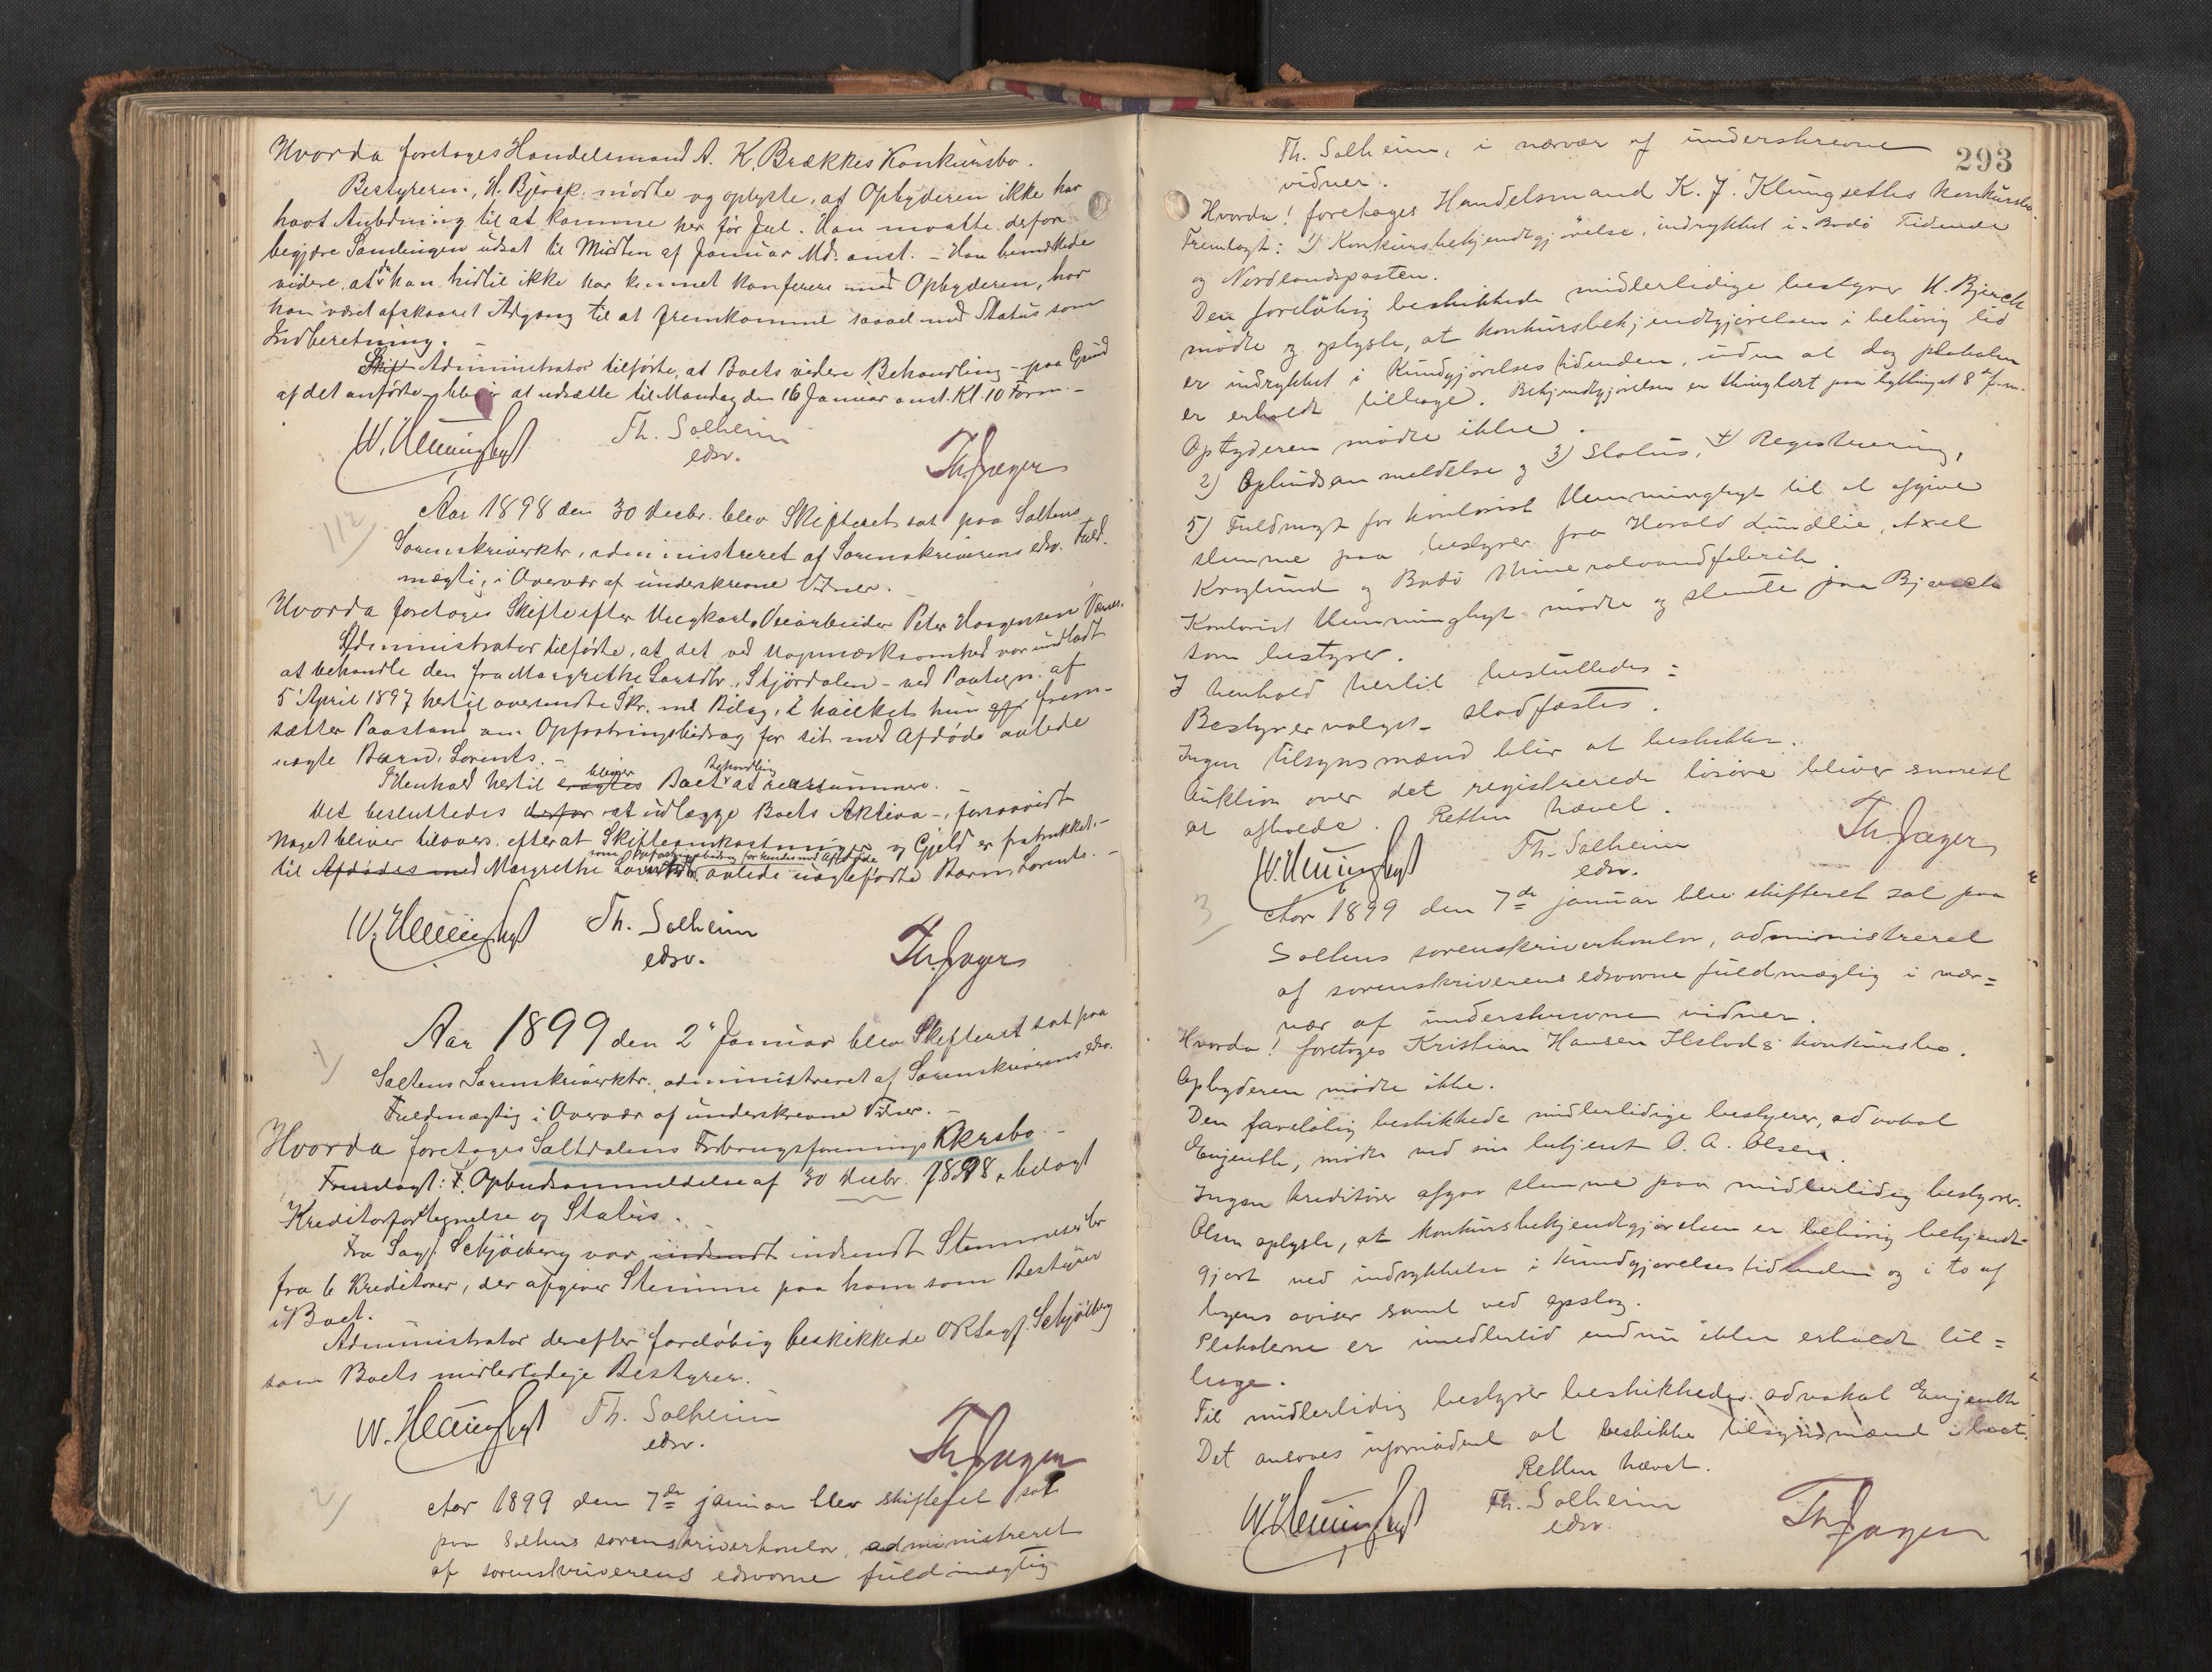 Hvorda foretages Handelsmand A. K. Brækkes Konkursbo.
Bestyreren, H. Bjerck mødte og oplyste, at Opbyderen ikke har
havt Anledning til at komme her før Jul. Han maatte derfor
begjære Samlingen udsat til Midten af Januar Md. anst. – Han bemærkede
videre, at da han hidtil ikke har kunnet konferere med Opbyderen, har
han været afskaaret Adgang til at fremkomme saavel med Status som
Indberetning. –
Skift Administrator tilførte, at Boets videre Behandling – paa Grund
af det anførte – bliver at udsætte til Mandag den 16 Januar anst. Kl. 10 Form. –
W. Hemminghyt Th. Solheim
edsv.
Th. Jæger
112/
Aar 1898 den 30 Decbr. blev Skifteret sat paa Saltens
Sorenskriverktr., administreret af Sorenskriverens edsv. Fuld-
mægtig, i Overvær af underskrevne Vidner. –
Hvorda foretages Skifte efter Ungkarl, Veiarbeider Peter Haagensen
Administrator tilførte, at det ved Uopmærksomhed var undladt
at behandle den fra Margrethe Larsdtr., Stjørdalen – ved Paategn. af
5 April 1897 hertil oversendte Skr. med Bilag, i hvilket hun frem-
sætter Paastand om Opfostringsbidrag for sit med Afdøde avlede
uægte Barn, Lorents. –
I Henhold hertil eragtes bliver Boets Behandling at reassumere. –
Det besluttedes derfor at udlægge Boets Aktiva –, forsaavidt
Noget bliver tilovers, efterat Skifteomkostninger og Gjeld er fratrukket, –
som Opfostringsbidrag for hendes med Afdøde
til Afdødes med Margrethe Larsdtr. avlede uægtefødte Barn Lorents. –
W. Hemminghyt Th. Solheim
edsv.
Th. Jæger
1/
Aar 1899 den 2' Januar blev Skifteret sat paa
Saltens Sorenskriverktr., administreret af Sorenskriverens edsv.
Fuldmægtig i Overvær af underskrevne Vidner. –
Hvorda foretages Saltdalens Forbrugsforenings Kkrsbo. –
Fremlagt: 1. Opbudsanmeldelse af 30 Decbr. 1898, belagt
Kreditorfortegnelse og Status. –
Fra Sagf. Schjøberg var indsendt indsendt Stemmesedler
fra 6 Kreditorer, der afgiver Stemme paa ham som Bestyrer
i Boet.
Administrator derefter foreløbig beskikkede ORSagf. Schjøberg
som Boets midlertidige Bestyrer.
W. Hemminghyt Th. Solheim
edsv.
Th. Jæger
2/
Aar 1899 den 7de januar blev skifteret sat
paa Saltens sorenskriverkontor, administreret
af sorenskriverens edsvorne fuldmægtig
293
Th. Solheim, i nærvær af underskrevne
vidner.
Hvorda! foretages Handelsmand K. J. Klungseths konkursbo.
Fremlagt: 1) Konkursbekjendtgjørelse, indrykket i Bodø Tidende
og Nordlandsposten.
Den foreløbig beskikkede midlertidige bestyrer H. Bjerck
mødte og oplyste, at konkursbekjendtgjørelsen i behørig tid
er indrykket i Kundgjørelsestidenden, uden at dog plakaten
er erholdt tilbage. Bekjendtgjørelsen er thinglæst paa bythinget 8de f.m.
Opbyderen mødte ikke.
2) Opbudsanmeldelse og 3) Status, 4) Registrering,
5) Fuldmagt for kontorist Hemminghyt til at afgive
stemme paa bestyrer fra Harald Lundlie, Axel
Kroglund og Bodø Mineralvandfabrik.
Kontorist Hemminghyt mødte og stemte paa Bjerck
som bestyrer.
I henhold hertil besluttedes:
Bestyrervalget stadfæstes.
Ingen tilsynsmænd blir at beskikke.
Auktion over det registrerede løsøre bliver snarest
at afholde. Retten hævet.
W. Hemminghyt Th. Solheim
edsv.
Th. Jæger
3/
Aar 1899 den 7de januar blev skifteret sat paa
Saltens sorenskriverkontor, administreret
af sorenskriverens edsvorne fuldmægtig i nær=
vær af underskrevne vidner.
Hvorda! foretages Kristian Hansen Ilstads konkursbo.
Opbyderen mødte ikke.
Den foreløbig beskikkede midlertidige bestyrer, advokat
Engenth, mødte ved sin betjent O. A. Olsen.
Ingen kreditorer afgav stemme paa midlertidig bestyrer.
Olsen oplyste, at konkursbekjendtgjørelsen er behørig bekjendt-
gjort ved indrykkelse i Kundgjørelsestidenden og i to af
byens aviser samt ved opslag.
Plakaterne er imidlertid endnu ikke erholdt til=
bage.
Til midlertidig bestyrer beskikkedes advokat Engenth
Det ansaaes ufornødent at beskikke tilsynsmænd i boet.
Retten hævet.
W. Hemminghyt Th. Solheim
edsv.
Th. Jæger